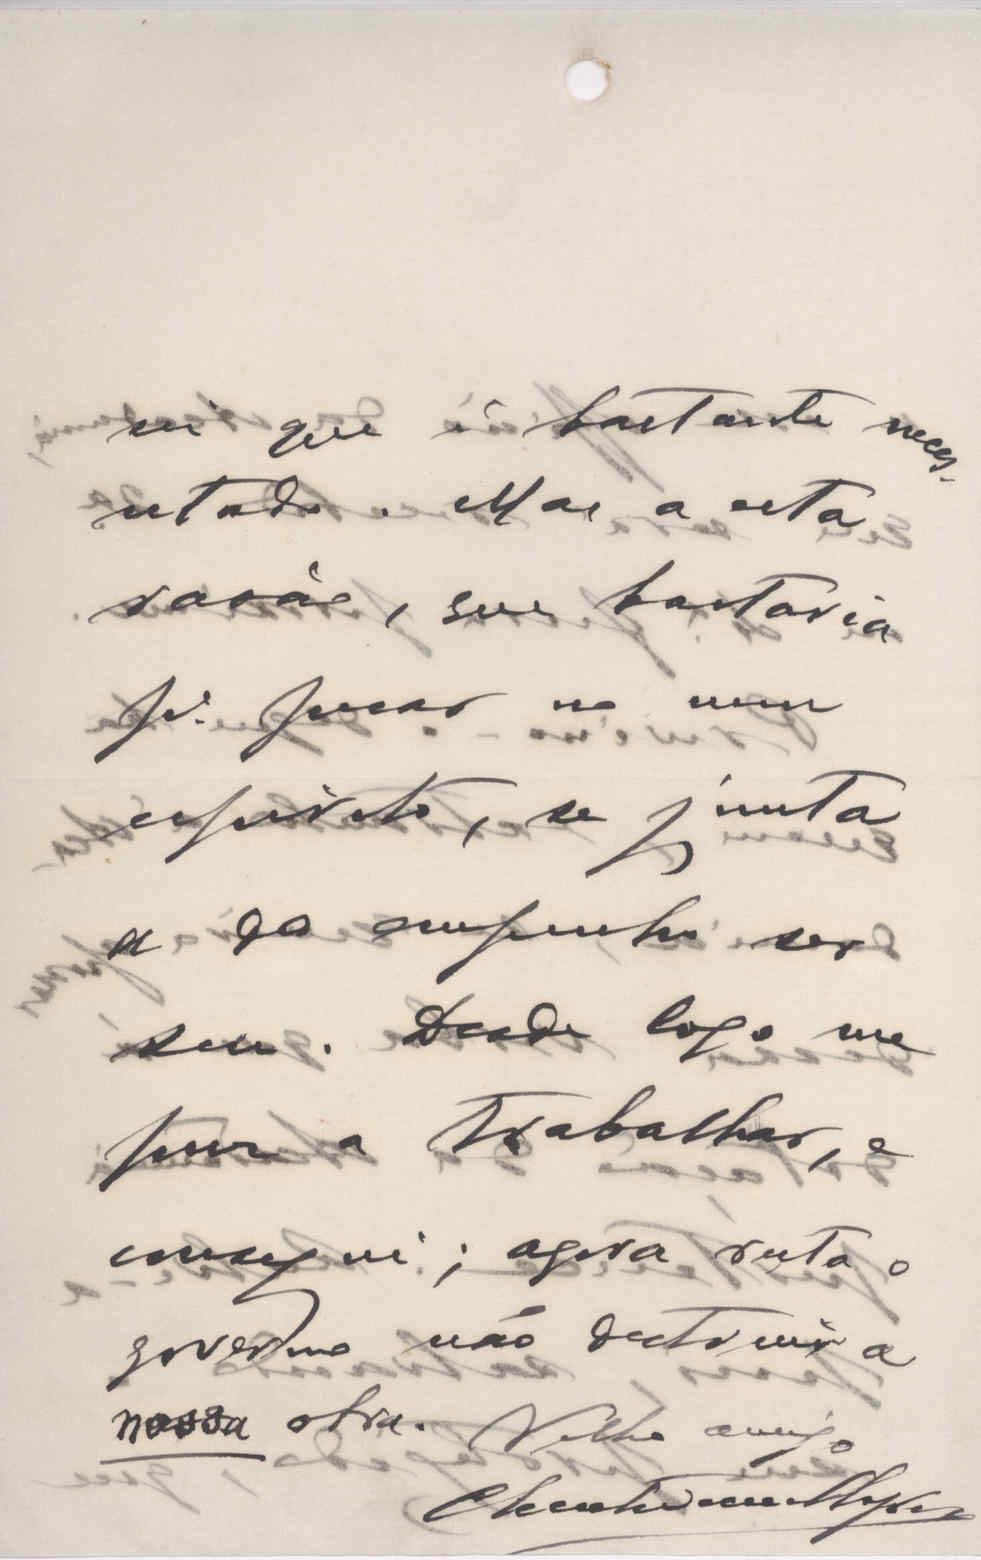 sei que é bastante neces-
sitado. Mas a esta
rasão, que bastaria
p.ª pesar no meu
espirito, se junta
a do empenho ser
seu. Desde logo me
puz a trabalhar, e
consegui; agora resta o
governo não destruir a
nossa obra. Velho amigo